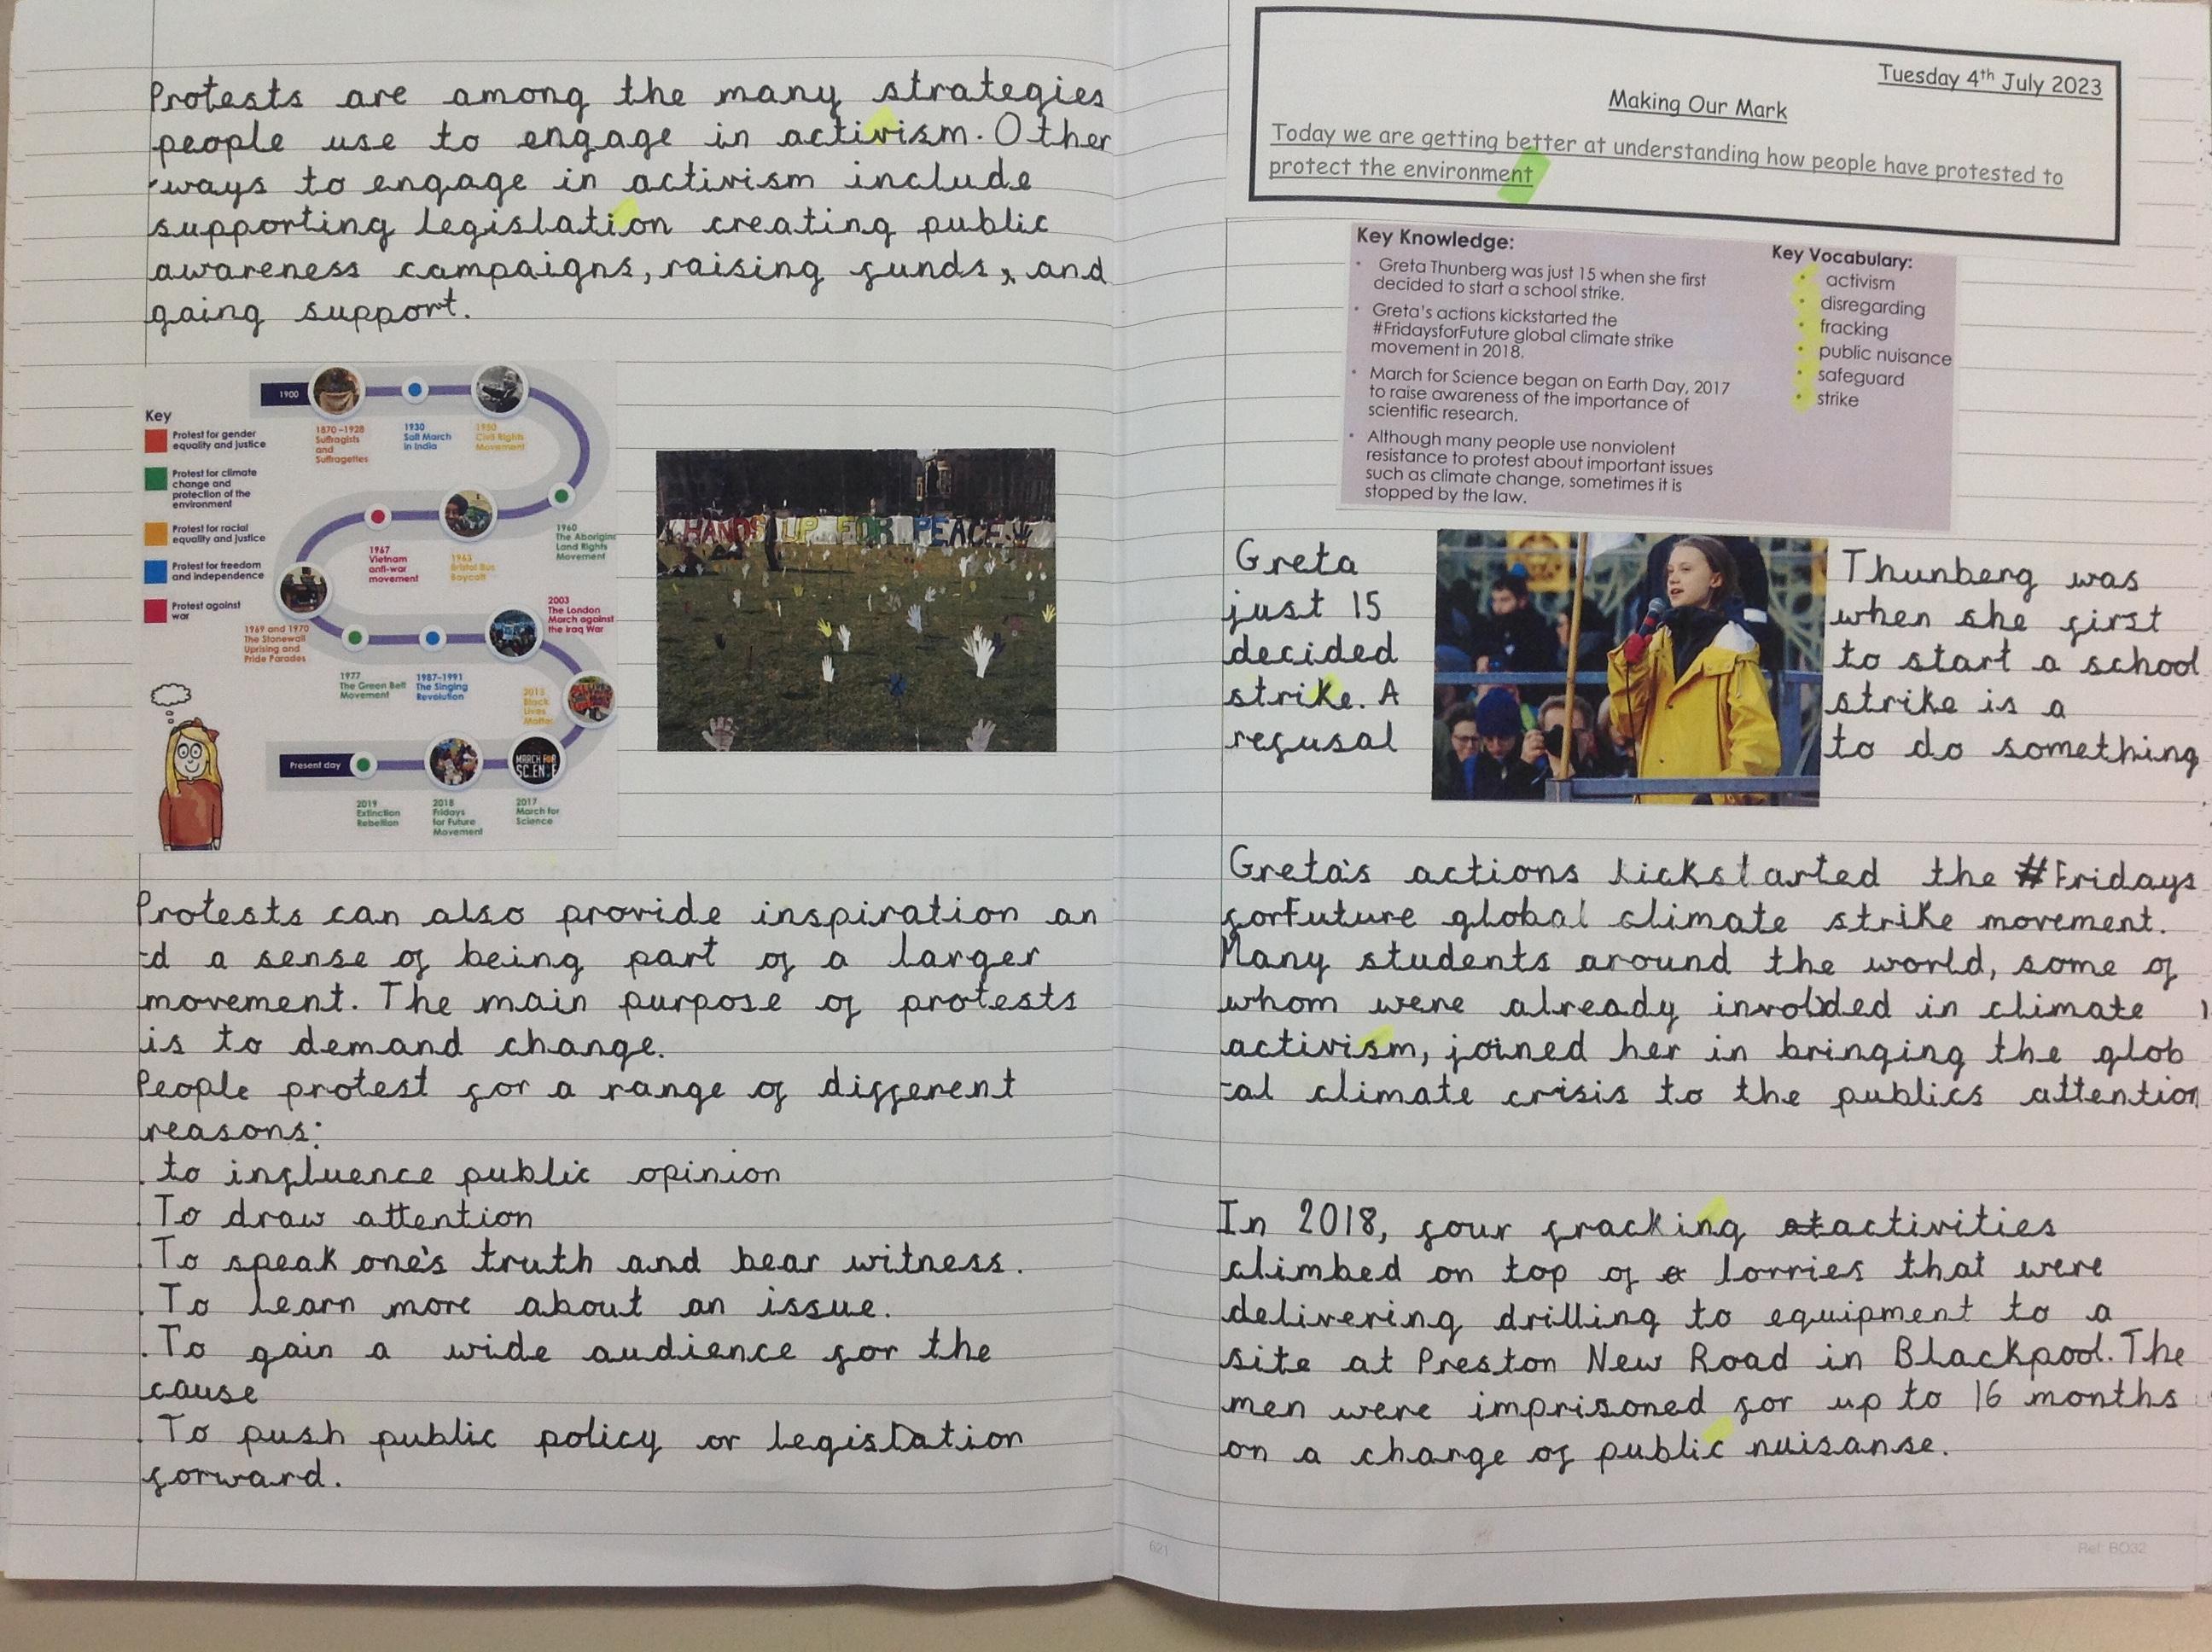 Protests are among the many strategies
people use to engage in activism. Other
ways to engage in activism include
supporting legislation creating public
awareness campaigns, raising funds, and
gaing support.
1900
Key
Protest for gender
equality and justice
Protest for climate
change and
protection of the
environment
Protest for racial
equality and justice
Protest for freedom
and independence
Protest against
war
1870–1928
Suffragists
and
Suffragettes
1930
Salt March
in India
1950
Civil Rights
Movement
1960
The Aborigin
Land Rights
Movement
1963
Bristol Bus
Boycott
1967
Vietnam
anti-war
movement
1969 and 1970
The Stonewall
Uprising and
Pride Parades
1977
The Green Belt
Movement
1987–1991
The Singing
Revolution
2003
The London
March against
the Iraq War
2013
Black
Lives
Matter
MARCH FOR
SCIENCE
2017
March for
Science
2018
Fridays
for Future
Movement
2019
Extinction
Rebellion
Present day
HANDS UP FOR PEACE
Protests can also provide inspiration an
-d a sense of being part of a larger
movement. The main purpose of protests
is to demand change.
People protest for a range of different
reasons:
. to influence public opinion
. To draw attention
. To speak one's truth and bear witness.
. To learn more about an issue.
. To gain a wide audience for the
cause
. To push public policy or legislation
forward.
Tuesday 4th July 2023
Making Our Mark
Today we are getting better at understanding how people have protested to
protect the environment
Key Knowledge:
• Greta Thunberg was just 15 when she first
decided to start a school strike.
• Greta's actions kickstarted the
#FridaysforFuture global climate strike
movement in 2018.
• March for Science began on Earth Day, 2017
to raise awareness of the importance of
scientific research.
• Although many people use nonviolent
resistance to protest about important issues
such as climate change, sometimes it is
stopped by the law.
Key Vocabulary:
• activism
• disregarding
• fracking
• public nuisance
• safeguard
• strike
Greta Thunberg was
just 15 when she first
decided to start a school
strike. A strike is a
refusal to do something
Greta's actions kickstarted the #Fridays
forFuture global climate strike movement.
Many students around the world, some of
whom were already involded in climate
activism, joined her in bringing the glob
-al climate crisis to the publics attention
In 2018, four fracking at activities
climbed on top of a lorries that were
delivering drilling to equipment to a
site at Preston New Road in Blackpool. The
men were imprisoned for up to 16 months
on a change of public nuisanse.
621
Ref: BO32